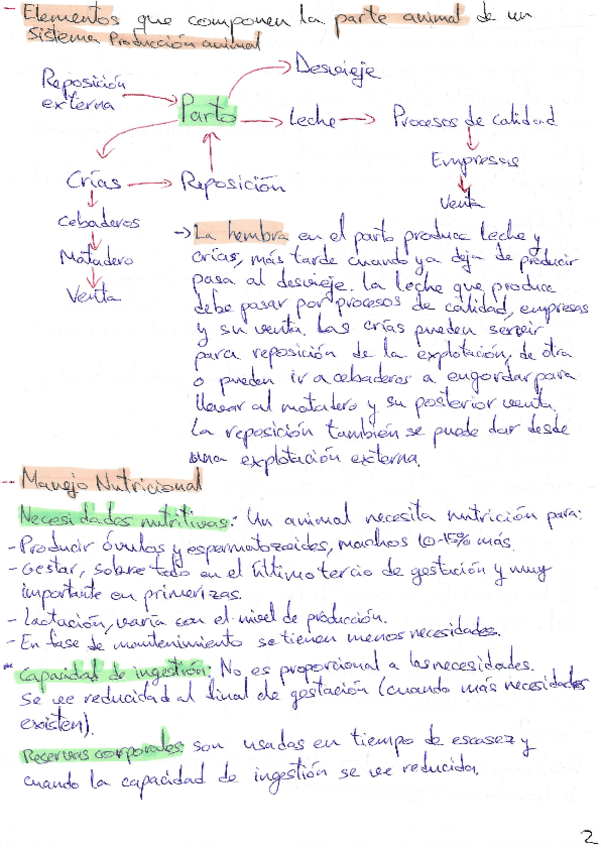 - Elementos que componen la parte animal de un
Sistema Producción animal
Reposición
externa
Desvieje
Parto
Leche
Procesos de calidad
Empresas
Venta
Crías
Reposición
Cebaderos
Matadero
Venta
→ La hembra en el parto produce leche y
crías, más tarde cuando ya deja de producir
pasa al desvieje. La leche que produce
debe pasar por procesos de calidad, empresas
y su venta. Las crías pueden servir
para reposición de la explotación, de otra
o pueden ir a cebaderos a engordar para
llevar al matadero y su posterior venta.
La reposición también se puede dar desde
una explotación externa.
- Manejo Nutricional
Necesidades nutritivas: Un animal necesita nutrición para:
- Producir óvulos y espermatozoides, machos 10-15% más.
- Gestar, sobre todo en el último tercio de gestación y muy
importante en primerizas.
- Lactación, varía con el nivel de producción.
- En fase de mantenimiento se tienen menos necesidades.
- Capacidad de ingestión: No es proporcional a las necesidades.
Se ve reducida al final de gestación (cuando más necesidades
existen).
Reservas corporales: son usadas en tiempo de escasez y
cuando la capacidad de ingestión se ve reducida.
2